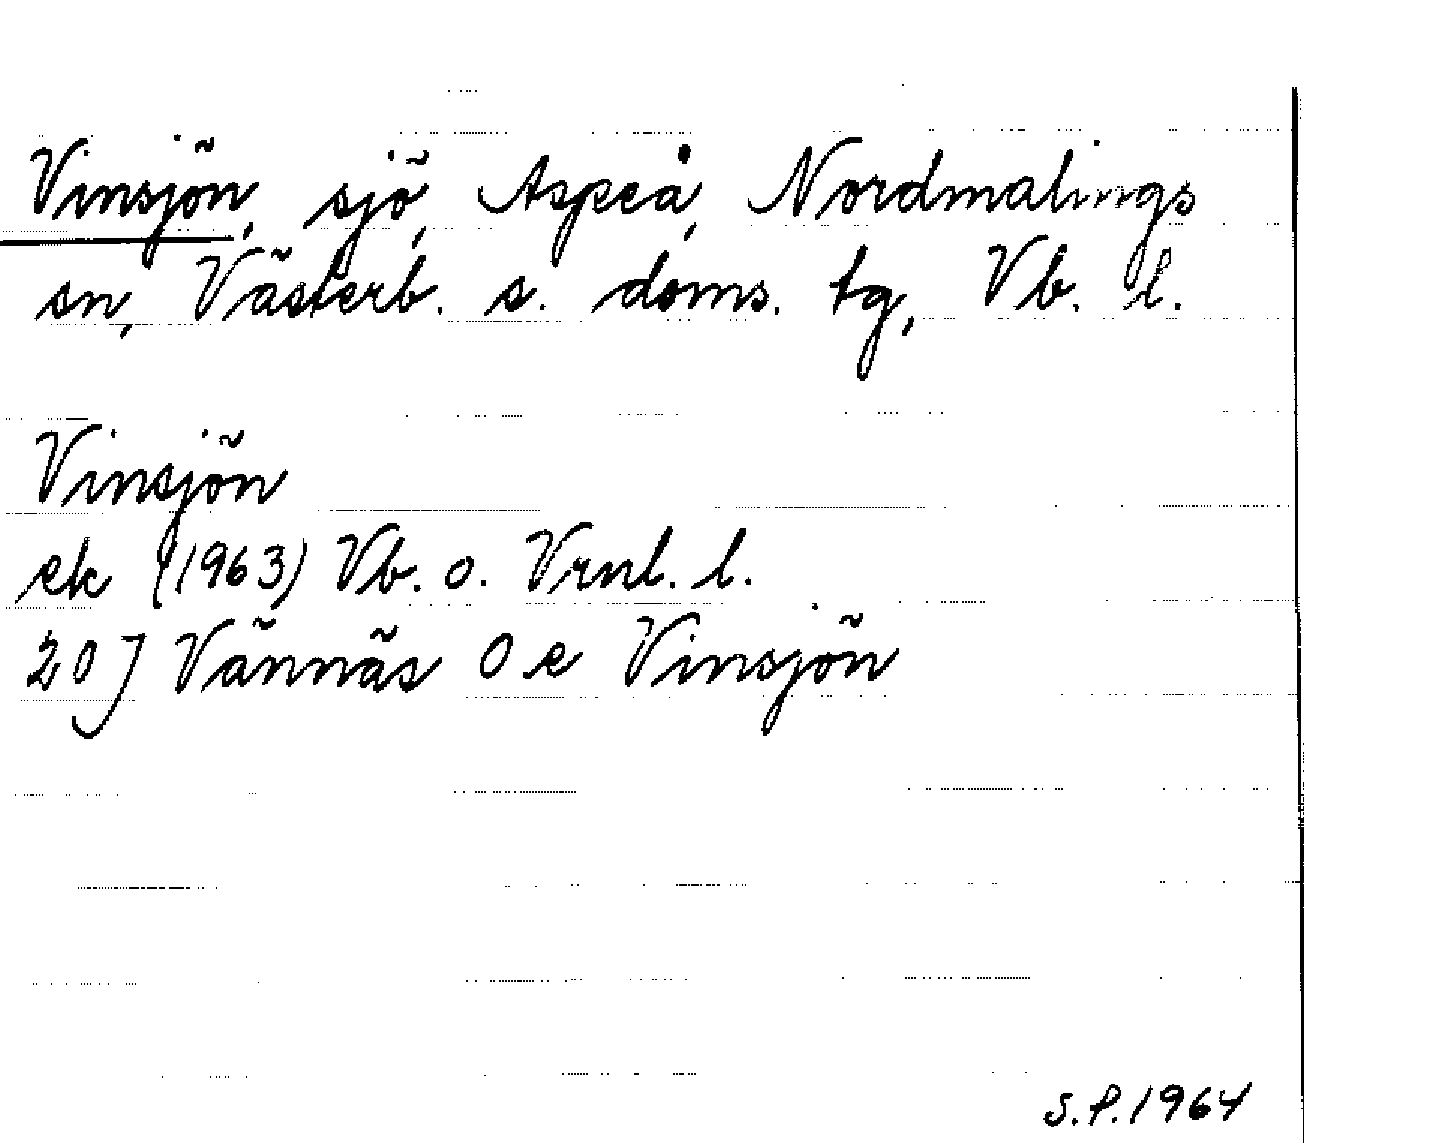 Vinsjön, sjö, Aspeå, Nordmalings
sn, Västerb. s. doms. tg, Vb. l.
Vinsjön
ek (1963) Vb. o. Vrnl. l.
20 J Vännäs 0 e Vinsjön
S.P. 1964